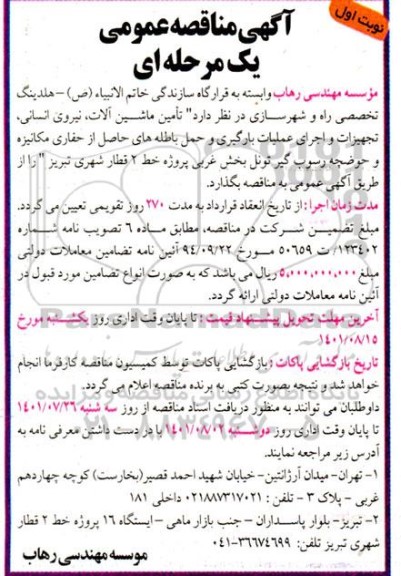 نوبت اول
آگهی مناقصه عمومی
یک مرحله ای
مؤسسه مهندسی رهاب وابسته به قرارگاه سازندگی خاتم الانبیاء (ص) – هلدینگ
تخصصی راه و شهرسازی در نظر دارد" تأمین ماشین آلات، نیروی انسانی،
تجهیزات و اجرای عملیات بارگیری و حمل باطله های حاصل از حفاری مکانیزه
و حوضچه رسوب گیر تونل بخش غربی پروژه خط ۲ قطار شهری تبریز " را از
طریق آگهی عمومی به مناقصه بگذارد.
مدت زمان اجرا : از تاریخ انعقاد قرارداد به مدت ۲۷۰ روز تقویمی تعیین می گردد.
مبلغ تضمین شرکت در مناقصه، مطابق ماده ۶ تصویب نامه شماره
۱۲۳۴۰۲/ت ۵۰۶۵۹ مورخ ۹۴/۰۹/۲۲ آئین نامه تضامین معاملات دولتی
مبلغ ۵,۰۰۰,۰۰۰,۰۰۰ ریال می باشد که به صورت انواع تضامین مورد قبول در
آئین نامه معاملات دولتی ارائه گردد.
آخرین مهلت تحویل پیشنهاد قیمت : تا پایان وقت اداری روز یکشنبه مورخ
۱۴۰۱/۰۸/۱۵
تاریخ بازگشایی پاکات : بازگشایی پاکات توسط کمیسیون مناقصه کارفرما انجام
خواهد شد و نتیجه بصورت کتبی به برنده مناقصه اعلام می گردد.
داوطلبان می توانند به منظور دریافت اسناد مناقصه از روز سه شنبه ۱۴۰۱/۰۷/۲۶
تا پایان وقت اداری روز دوشنبه ۱۴۰۱/۰۸/۰۲ با در دست داشتن معرفی نامه به
آدرس زیر مراجعه نمایند.
۱- تهران- میدان آرژانتین- خیابان شهید احمد قصیر(بخارست) کوچه چهاردهم
غربی – پلاک ۳ - تلفن : ۰۲۱۸۸۷۳۱۷۰۲۱ داخلی ۱۸۱
۲- تبریز- بلوار پاسداران – جنب بازار ماهی – ایستگاه ۱۶ پروژه خط ۲ قطار
شهری تبریز تلفن: ۳۶۶۷۴۶۹۹-۰۴۱
موسسه مهندسی رهاب